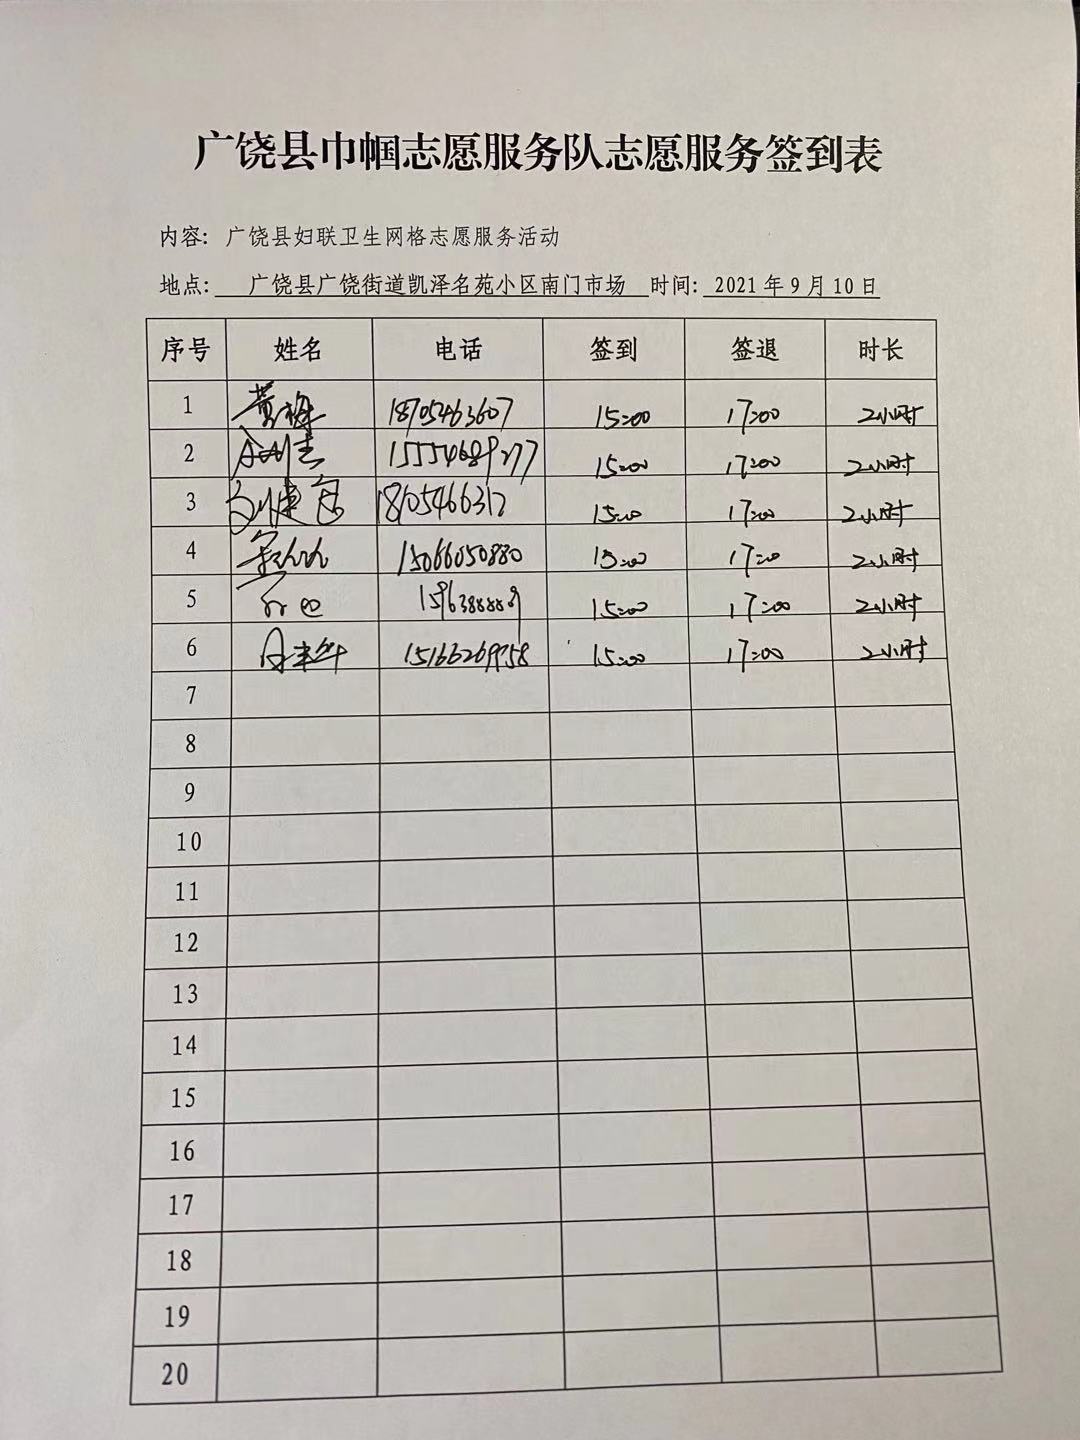 广饶县巾帼志愿服务队志愿服务签到表
内容: 广饶县妇联卫生网格志愿服务活动
地点: 广饶县广饶街道凯泽名苑小区南门市场 时间: 2021年9月10日
序号 姓名 电话 签到 签退 时长
1 黄梅 18705463607 15:00 17:00 2小时
2 15554689277 15:00 17:00 2小时
3 18105466317 15:00 17:00 2小时
4 15066050880 15:00 17:00 2小时
5 15:00 17:00 2小时
6 15166269958 15:00 17:00 2小时
7
8
9
10
11
12
13
14
15
16
17
18
19
20